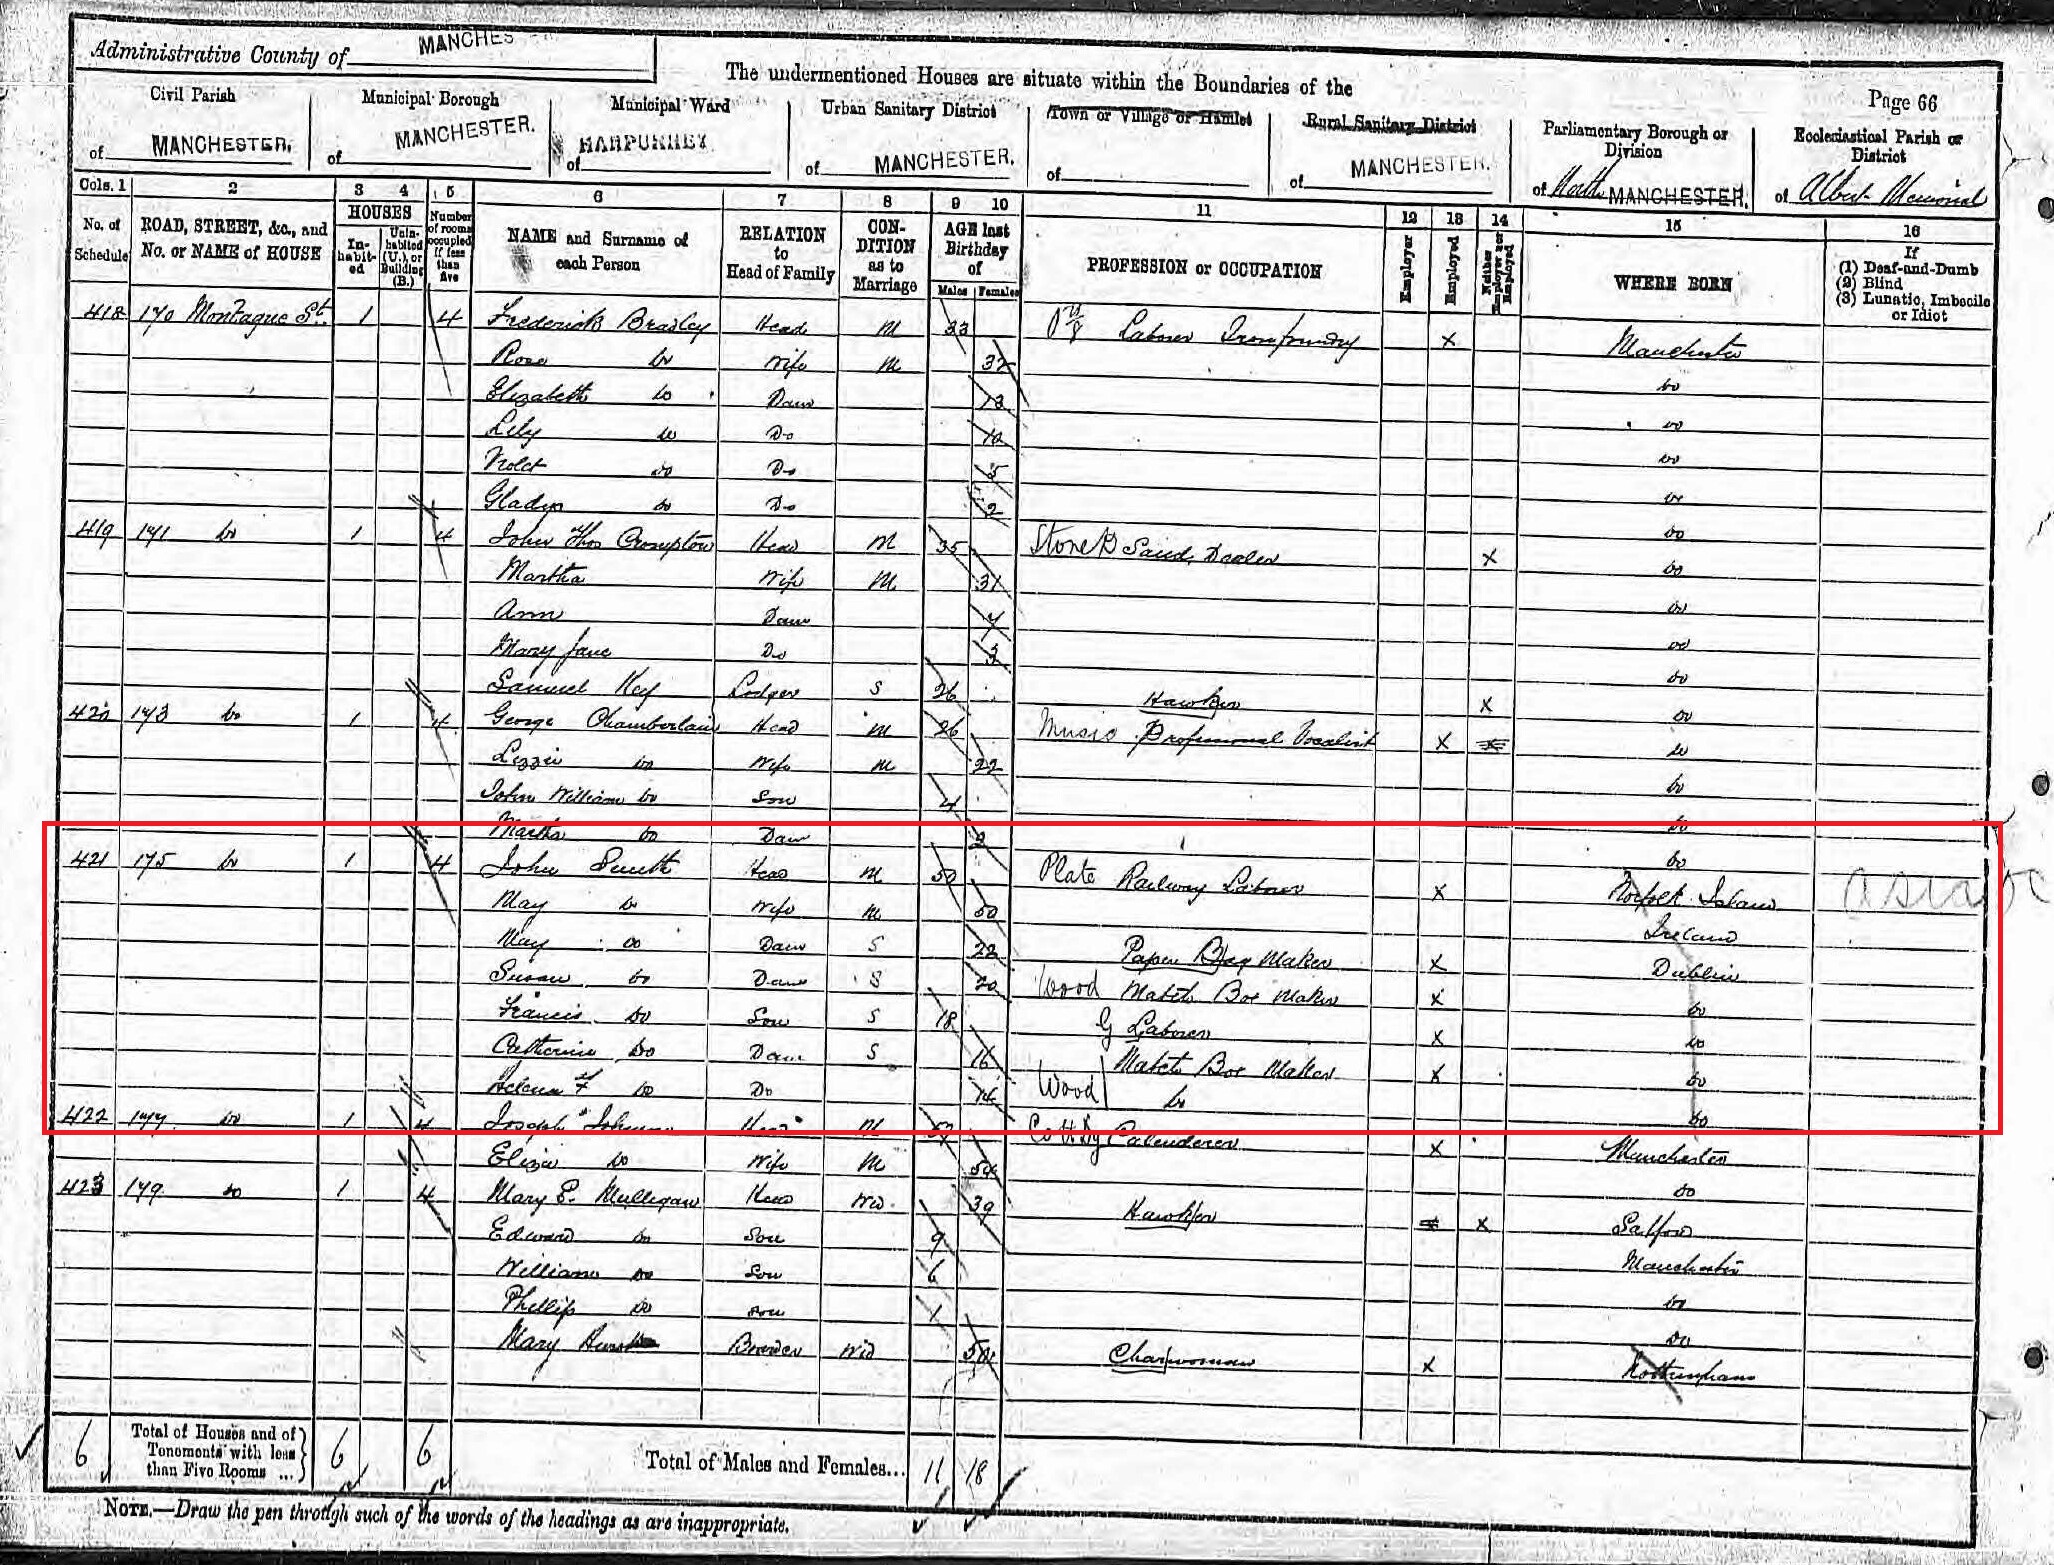 Administrative County of MANCHES
The undermentioned Houses are situate within the Boundaries of the
Page 66
Civil Parish of MANCHESTER.
Municipal Borough of MANCHESTER.
Municipal Ward of HARPURHEY
Urban Sanitary District of MANCHESTER.
Town or Village or Hamlet of
Rural Sanitary District of MANCHESTER.
Parliamentary Borough or Division of North MANCHESTER.
Ecclesiastical Parish or District of Albert Memorial
Cols. 1 2 3 4 5 6 7 8 9 10 11 12 13 14 15 16
No. of Schedule
ROAD, STREET, &c., and No. or NAME of HOUSE
HOUSES
In-habit-ed
Unin-habited (U.), or Building (B.)
Number of rooms occupied if less than five
NAME and Surname of each Person
RELATION to Head of Family
CON-DITION as to Marriage
AGE last Birthday of
Males Females
PROFESSION or OCCUPATION
Employer
Employed
Neither Employer nor Employed
WHERE BORN
If (1) Deaf-and-Dumb (2) Blind (3) Lunatic, Imbecile or Idiot
418 170 Montague St. 1 4 Frederick Bradley Head M 33 Laborer Iron foundry X Manchester
Rose Do Wife M 32 Do
Elizabeth Do Daur 13 Do
Lily Do Do 10 Do
Violet Do Do 5 Do
Gladys Do Do 2 Do
419 171 Do 1 4 John Thos Crompton Head M 35 Stone & Sand Dealer X Do
Martha Wife M 31 Do
Ann Daur 7 Do
Mary Jane Do 3 Do
Samuel Key Lodger S 26 Hawker X Do
420 173 Do 1 4 George Chamberlain Head M 26 Music Professional Vocalist X X Do
Lizzie Do Wife M 22 Do
John William Do Son 4 Do
Martha Do Daur 2 Do
421 175 Do 1 4 John Smith Head M 50 Plate Railway Laborer X Norfolk Island Asia
May Do Wife M 50 Ireland
May Do Daur S 22 Paper Bag Maker X Dublin
Susan Do Daur S 20 Wood Match Box Maker X Do
Francis Do Son S 18 G Laborer X Do
Catherine Do Daur S 16 Match Box Maker X Do
Helena F Do Do 14 Wood Do Do
422 177 Do 1 4 Joseph Johnson Head M 52 Calenderer X Manchester
Eliza Do Wife M 54 Do
423 179 Do 1 4 Mary E. Mulligan Head Wid. 39 Hawker X Salford
Edward Do Son 9 Manchester
William Do Son 6 Do
Phillip Do Son 1 Do
Mary Boarder Wid 50 Charwoman X Nottingham
6 Total of Houses and of Tenements with less than Five Rooms ... 6 6 Total of Males and Females... 11 18
NOTE.—Draw the pen through such of the words of the headings as are inappropriate.